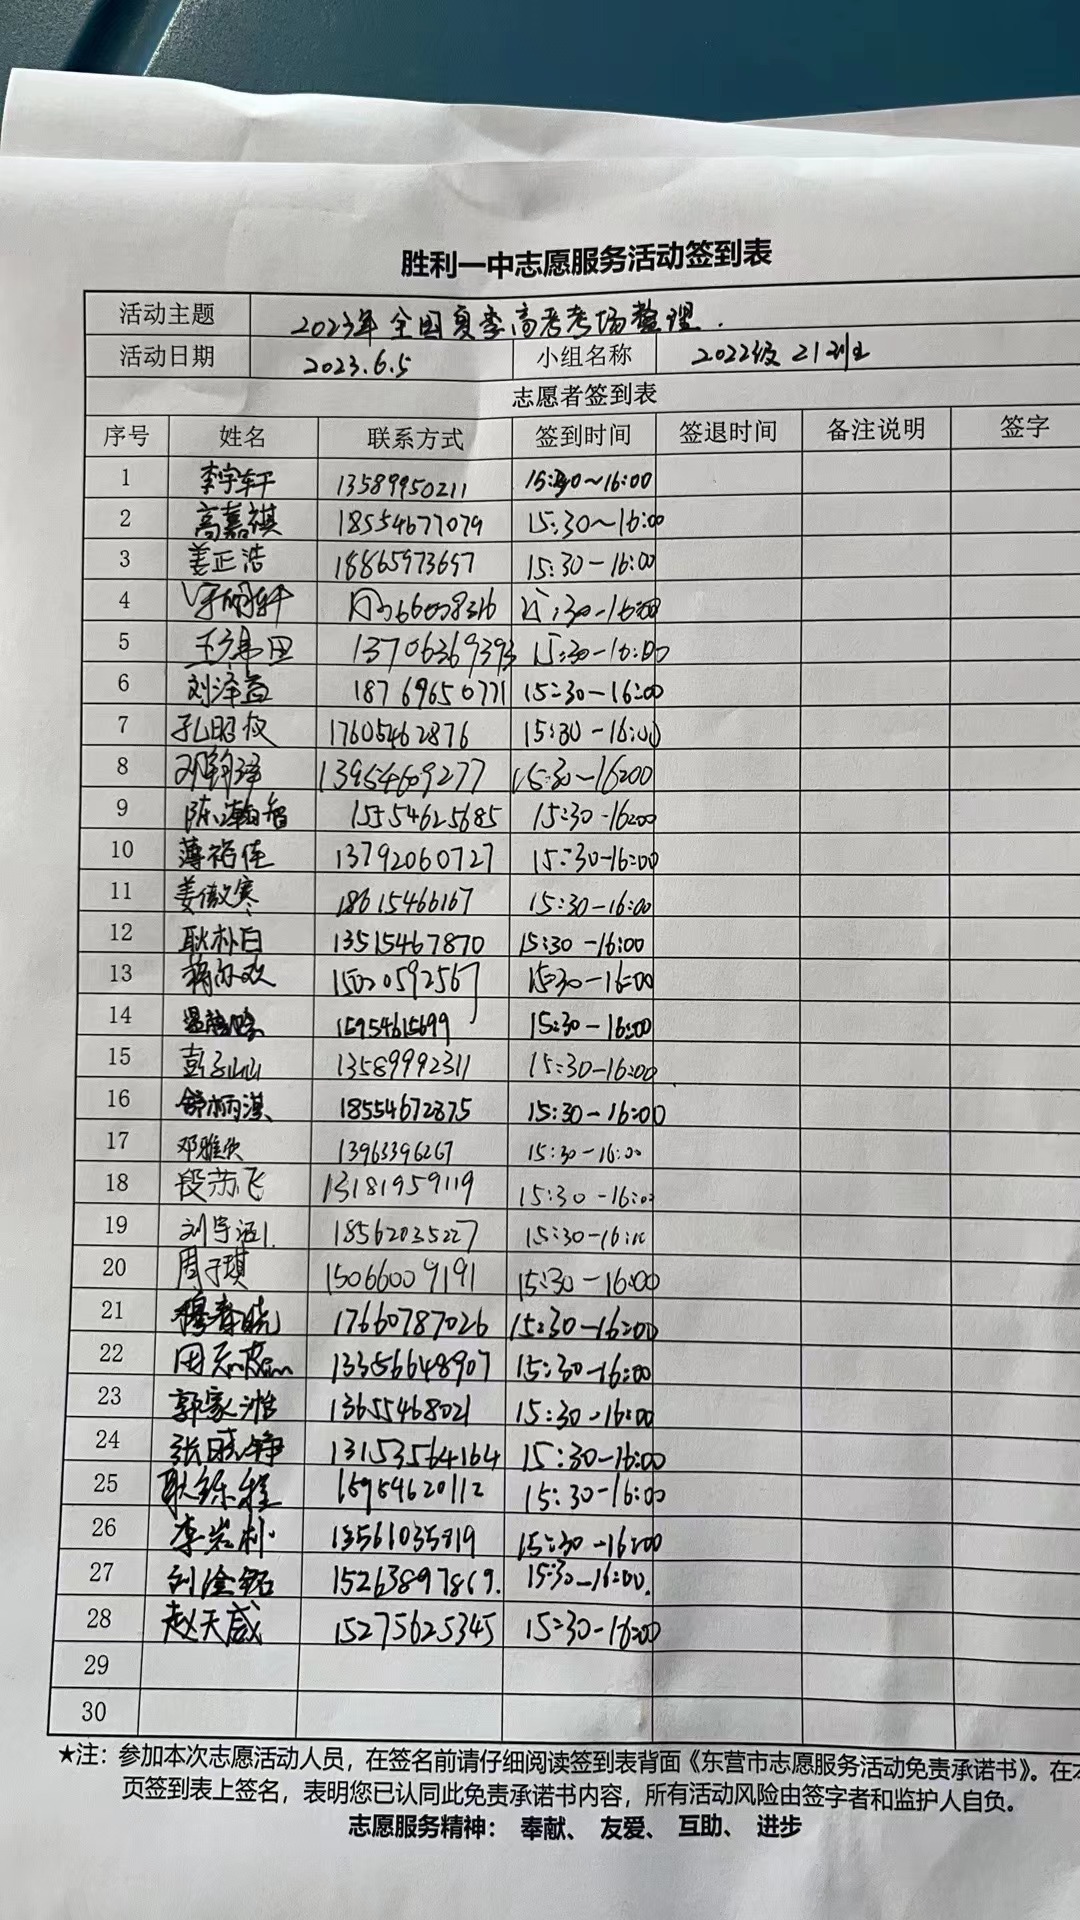 胜利一中志愿服务活动签到表
活动主题 2023年全国夏季高考考场整理.
活动日期 2023.6.5 小组名称 2022级21班
志愿者签到表
序号 姓名 联系方式 签到时间 签退时间 备注说明 签字
1 李宇轩 13589950211 15:30~16:00
2 高嘉祺 18554677079 15:30~16:00
3 姜正浩 18865973657 15:30-16:00
4 15:30-16:00
5 13706369393 15:30-16:00
6 刘泽益 18769650771 15:30-16:00
7 孔昭仪 17605462876 15:30-16:00
8 邓翰泽 13954609277 15:30-16:00
9 陈瀚智 15554625685 15:30-16:00
10 薄裕佳 13792060727 15:30-16:00
11 姜傲寒 18615466167 15:30-16:00
12 耿朴白 13515467870 15:30-16:00
13 15020592567 15:30-16:00
14 15954615699 15:30-16:00
15 彭子山山 13589992311 15:30-16:00
16 舒炳淇 18554672875 15:30-16:00
17 邓雅欣 13963396267 15:30-16:00
18 段苏飞 13181959119 15:30-16:00
19 刘宇涵 18562035227 15:30-16:00
20 周于琪 15066009191 15:30-16:00
21 穆春晓 17660787026 15:30-16:00
22 13356648907 15:30-16:00
23 郭家潍 13655468021 15:30-16:00
24 张晓铮 13153564164 15:30-16:00
25 耿铄程 15954620112 15:30-16:00
26 李岩彬 13561035919 15:30-16:00
27 刘淦铭 15263897869. 15:30-16:00.
28 赵天威 15275625345 15:30-16:00
29
30
★注：参加本次志愿活动人员，在签名前请仔细阅读签到表背面《东营市志愿服务活动免责承诺书》。在本
页签到表上签名，表明您已认同此免责承诺书内容，所有活动风险由签字者和监护人自负。
志愿服务精神： 奉献、 友爱、 互助、 进步